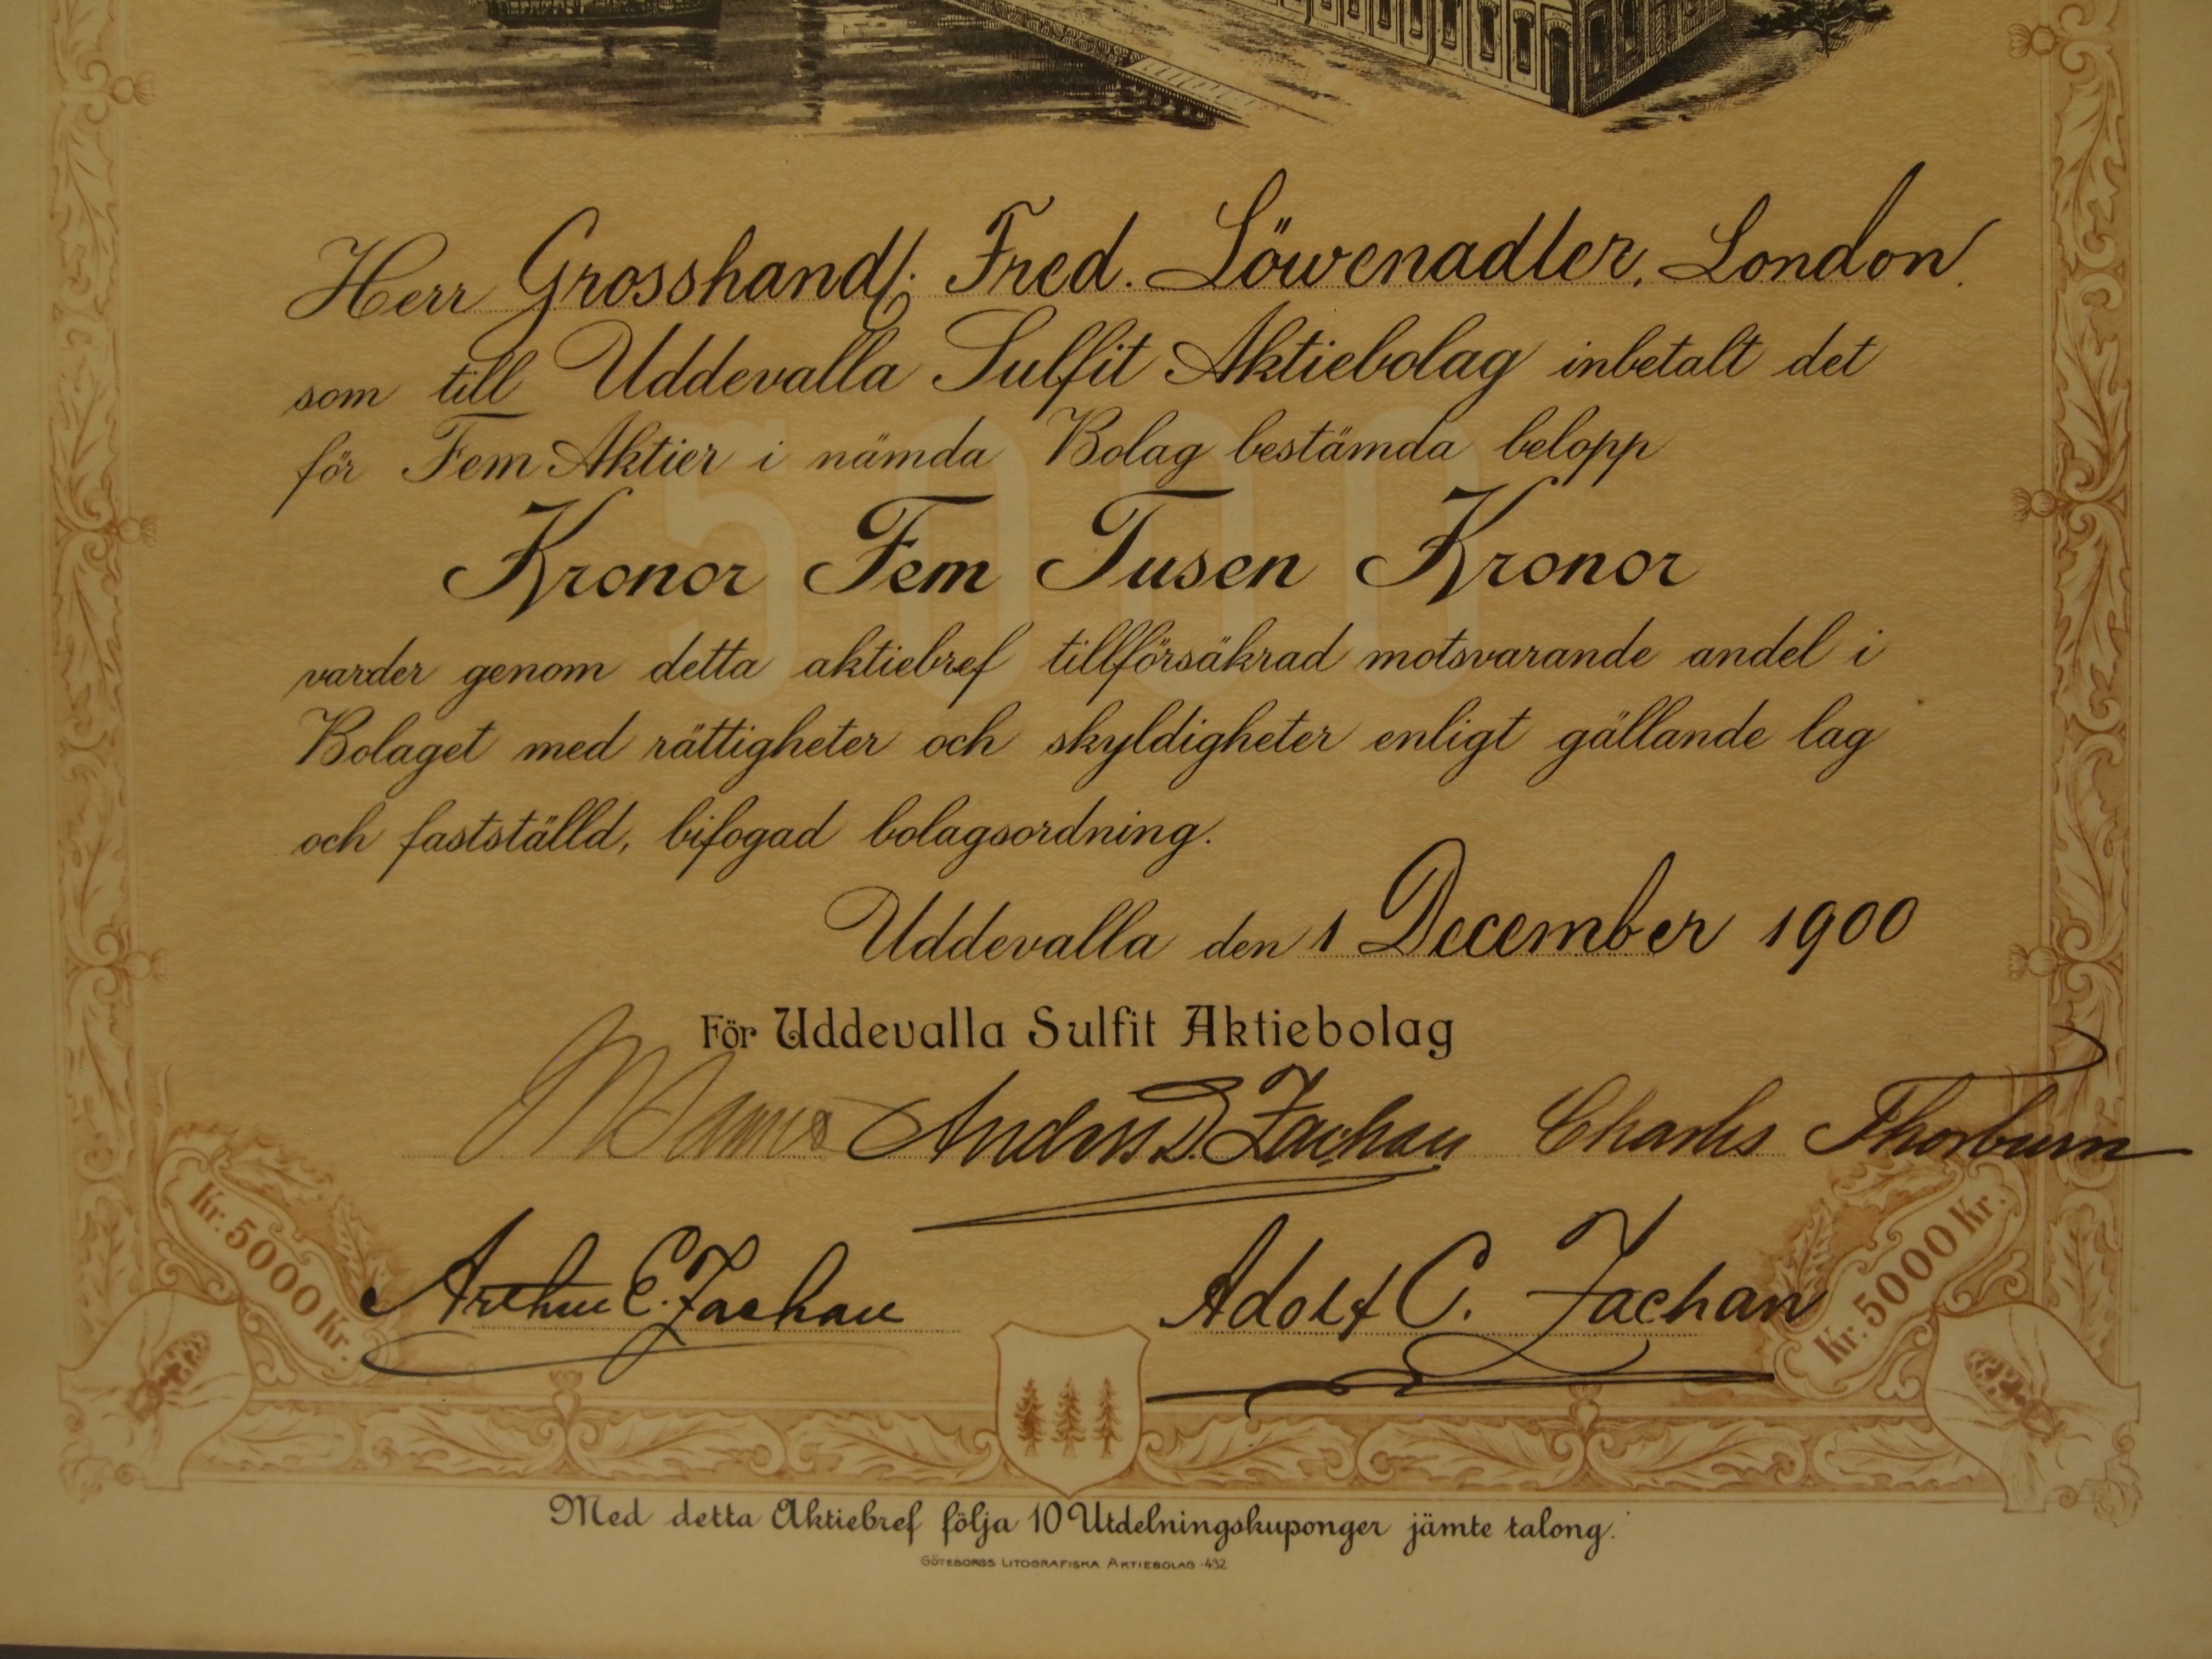 Herr Grosshandl. Fred. Löwenadler, London.
som till Uddevalla Sulfit Aktiebolag inbetalt det
för Fem Aktier i nämda Bolag bestämda belopp
5000
Kronor Fem Tusen Kronor
varder genom detta aktiebref tillförsäkrad motsvarande andel i
Bolaget med rättigheter och skyldigheter enligt gällande lag
och fastställd, bifogad bolagsordning.
Uddevalla den 1 December 1900
För Uddevalla Sulfit Aktiebolag
Anders D. Zachau Charles Thorburn
Kr. 5000 Kr.
Arthur C. Zachau Adolf C. Zachau
Kr. 5000 Kr.
Med detta Aktiebref följa 10 Utdelningskuponger jämte talong.
GÖTEBORGS LITOGRAFISKA AKTIEBOLAG ·492